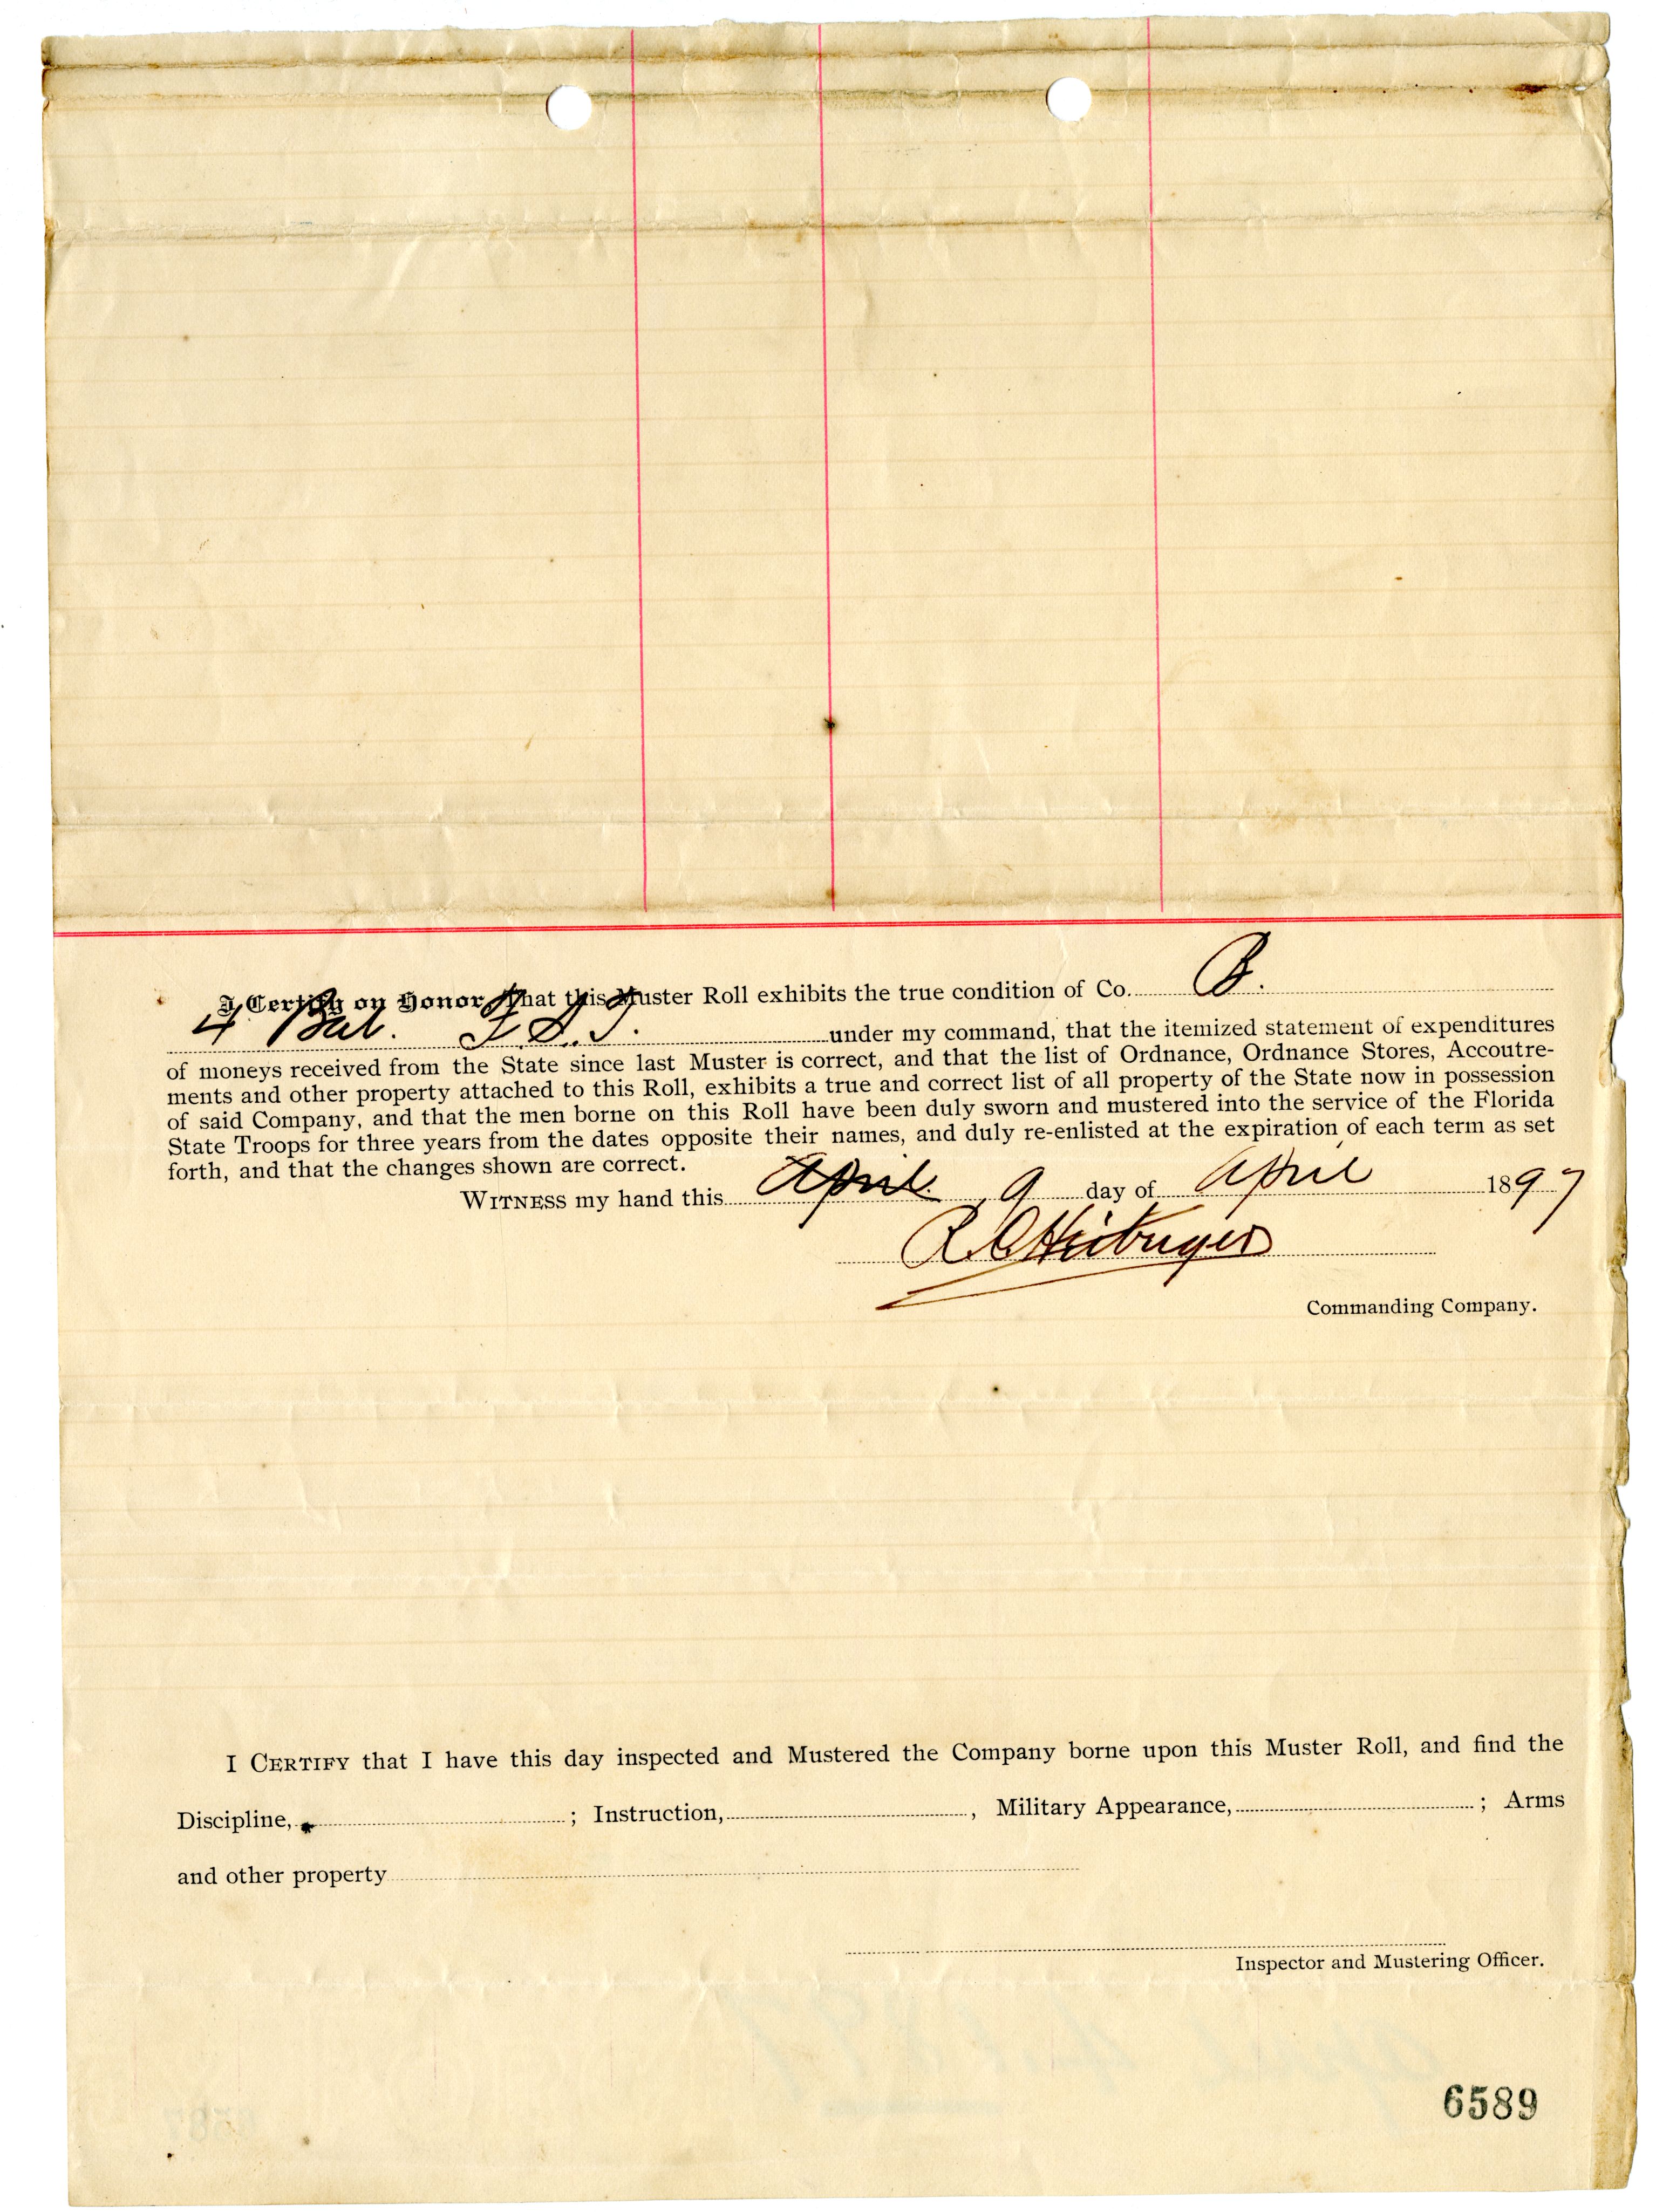 I Certify on Honor, That this Muster Roll exhibits the true condition of Co. B.
4 Bat. F. S. T. under my command, that the itemized statement of expenditures
of moneys received from the State since last Muster is correct, and that the list of Ordnance, Ordnance Stores, Accoutre-
ments and other property attached to this Roll, exhibits a true and correct list of all property of the State now in possession
of said Company, and that the men borne on this Roll have been duly sworn and mustered into the service of the Florida
State Troops for three years from the dates opposite their names, and duly re-enlisted at the expiration of each term as set
forth, and that the changes shown are correct.
WITNESS my hand this April 9 day of April 1897
Commanding Company.
I CERTIFY that I have this day inspected and Mustered the Company borne upon this Muster Roll, and find the
Discipline, ; Instruction, , Military Appearance, ; Arms
and other property
Inspector and Mustering Officer.
6589